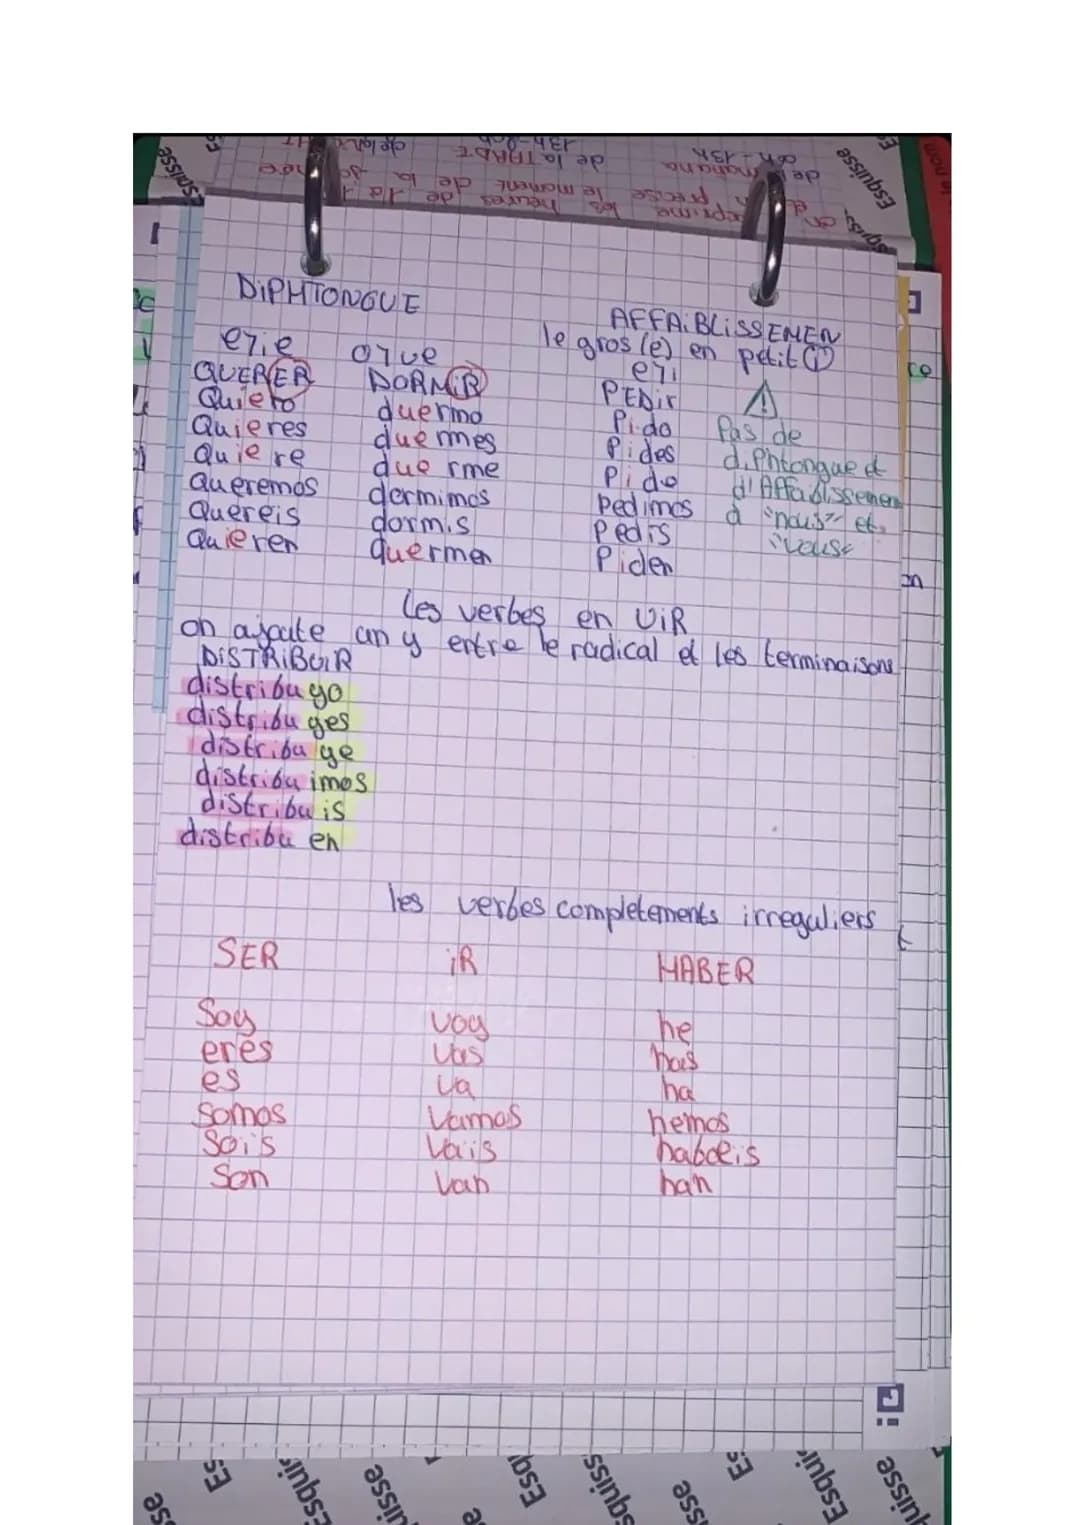 DiPHTONGUE
e7ie
o7ue
QUERER
DORMiR
Quiero
duermo
Quieres
duermes
Quiere
duerme
Queremos
dormimos
Quereis
dormis
Quieren
duermen
AFFAiBLiSSEMEN
le gros (e) en petit (i)
e7i
PEDir
Pido
Pides
Pide
Pedimos
Pedis
Piden
Pas de
diPhtongue et
d'Affaiblissement
à "nous" et
"vous"
les verbes en UiR
on ajoute un y entre le radical et les terminaisons
DiSTRiBUiR
distribuyo
distribuyes
distribuye
distribuimos
distribuis
distribu en
les verbes completements irreguliers
SER
iR
HABER
Soy
voy
he
eres
vas
has
es
va
ha
Somos
Vamos
hemos
Sois
Vais
habéis
Son
Van
han
Esquisse
Esquisse